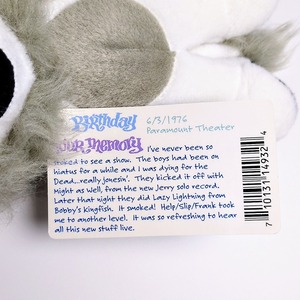 Birthday 6/3/1976
Paramount Theater
Your Memory I've never been so
stoked to see a show. The boys had been on
hiatus for a while and I was dying for the
Dead...really jonesin'. They kicked it off with
Might as Well, from the new Jerry solo record.
Later that night they did Lazy Lightning from
Bobby's Kingfish. It smoked! Help/Slip/Frank took
me to another level. It was so refreshing to hear
all this new stuff live.
7 10131 14932 4